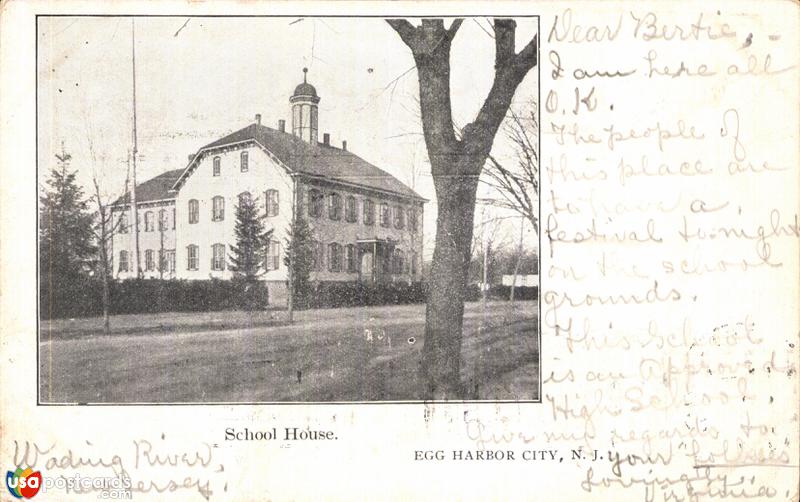 Dear Bertie, -
I am here all
O.K.
The people of
this place are
to have a
festival to-night
on the school
grounds.
This School
is an Approved
High School.
Give my regards to
your "folkses"
Lovingly,
Virginia.
School House.
EGG HARBOR CITY, N. J.
Wading River,
N. Jersey.
usapostcards
.com